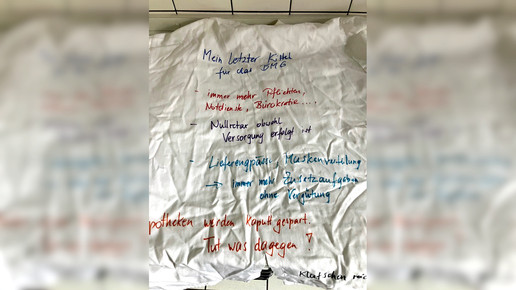 Mein letzter Kittel
für das BMG
- immer mehr Pflichten,
Notdienste, Bürokratie....
- Nullretax obwohl
Versorgung erfolgt ist
- Lieferengpässe, Maskenverteilung
→ immer mehr Zusatzaufgaben
ohne Vergütung
potheken werden kaputtgespart.
Tut was dagegen!